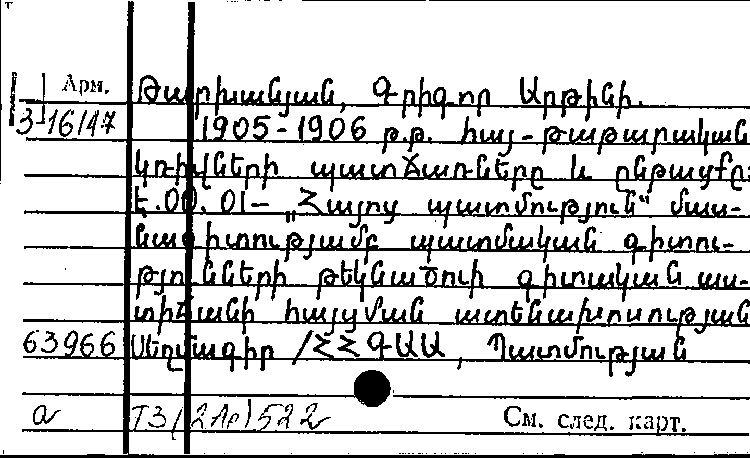 Арм.
Թարխանյան, Գրիգոր Արթինի.
3-16147
1905-1906 թ.թ. հայ-թաթարական
կռիվների պատճառները և ընթացքը:
Է.00.01- „Հայոց պատմություն" մաս-
նագիտությամբ պատմական գիտու-
թյունների թեկնածուի գիտական աս-
տիճանի հայցման ատենախոսության
63966 Սեղմագիր /ՀՀ ԳԱԱ, Պատմության
а Т3(2Ар)522
См. след. карт.